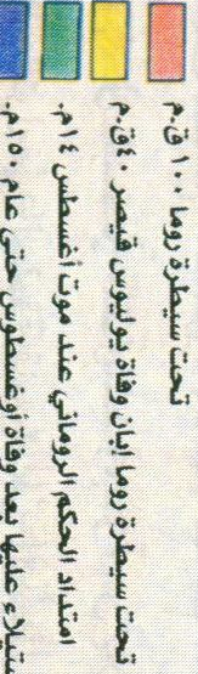 تحت سيطرة روما ١٠٠ ق.م
تحت سيطرة روما إبان وفاة يوليوس قيصر ٤٠ ق.م
امتداد الحكم الروماني عند موت أغسطس ١٤م.
عليها بعد وفاة أوغسطوس حتى عام ١٥٠م.